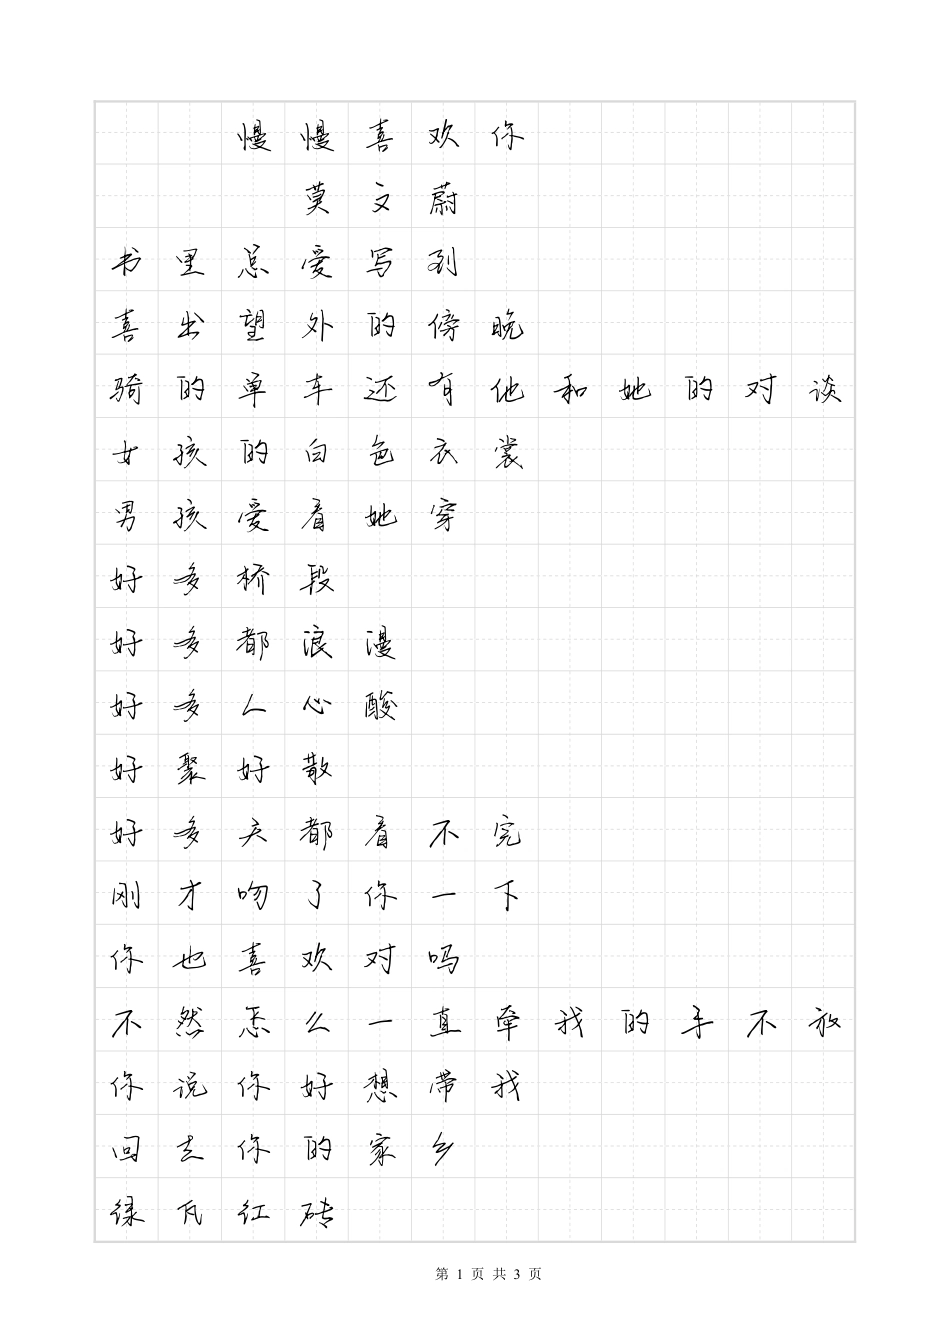 慢慢喜欢你
莫文蔚
书里总爱写到
喜出望外的傍晚
骑的单车还有他和她的对谈
女孩的白色衣裳
男孩爱看她穿
好多桥段
好多都浪漫
好多人心酸
好聚好散
好多天都看不完
刚才吻了你一下
你也喜欢对吗
不然怎么一直牵我的手不放
你说你好想带我
回去你的家乡
绿瓦红砖
第 1 页 共 3 页